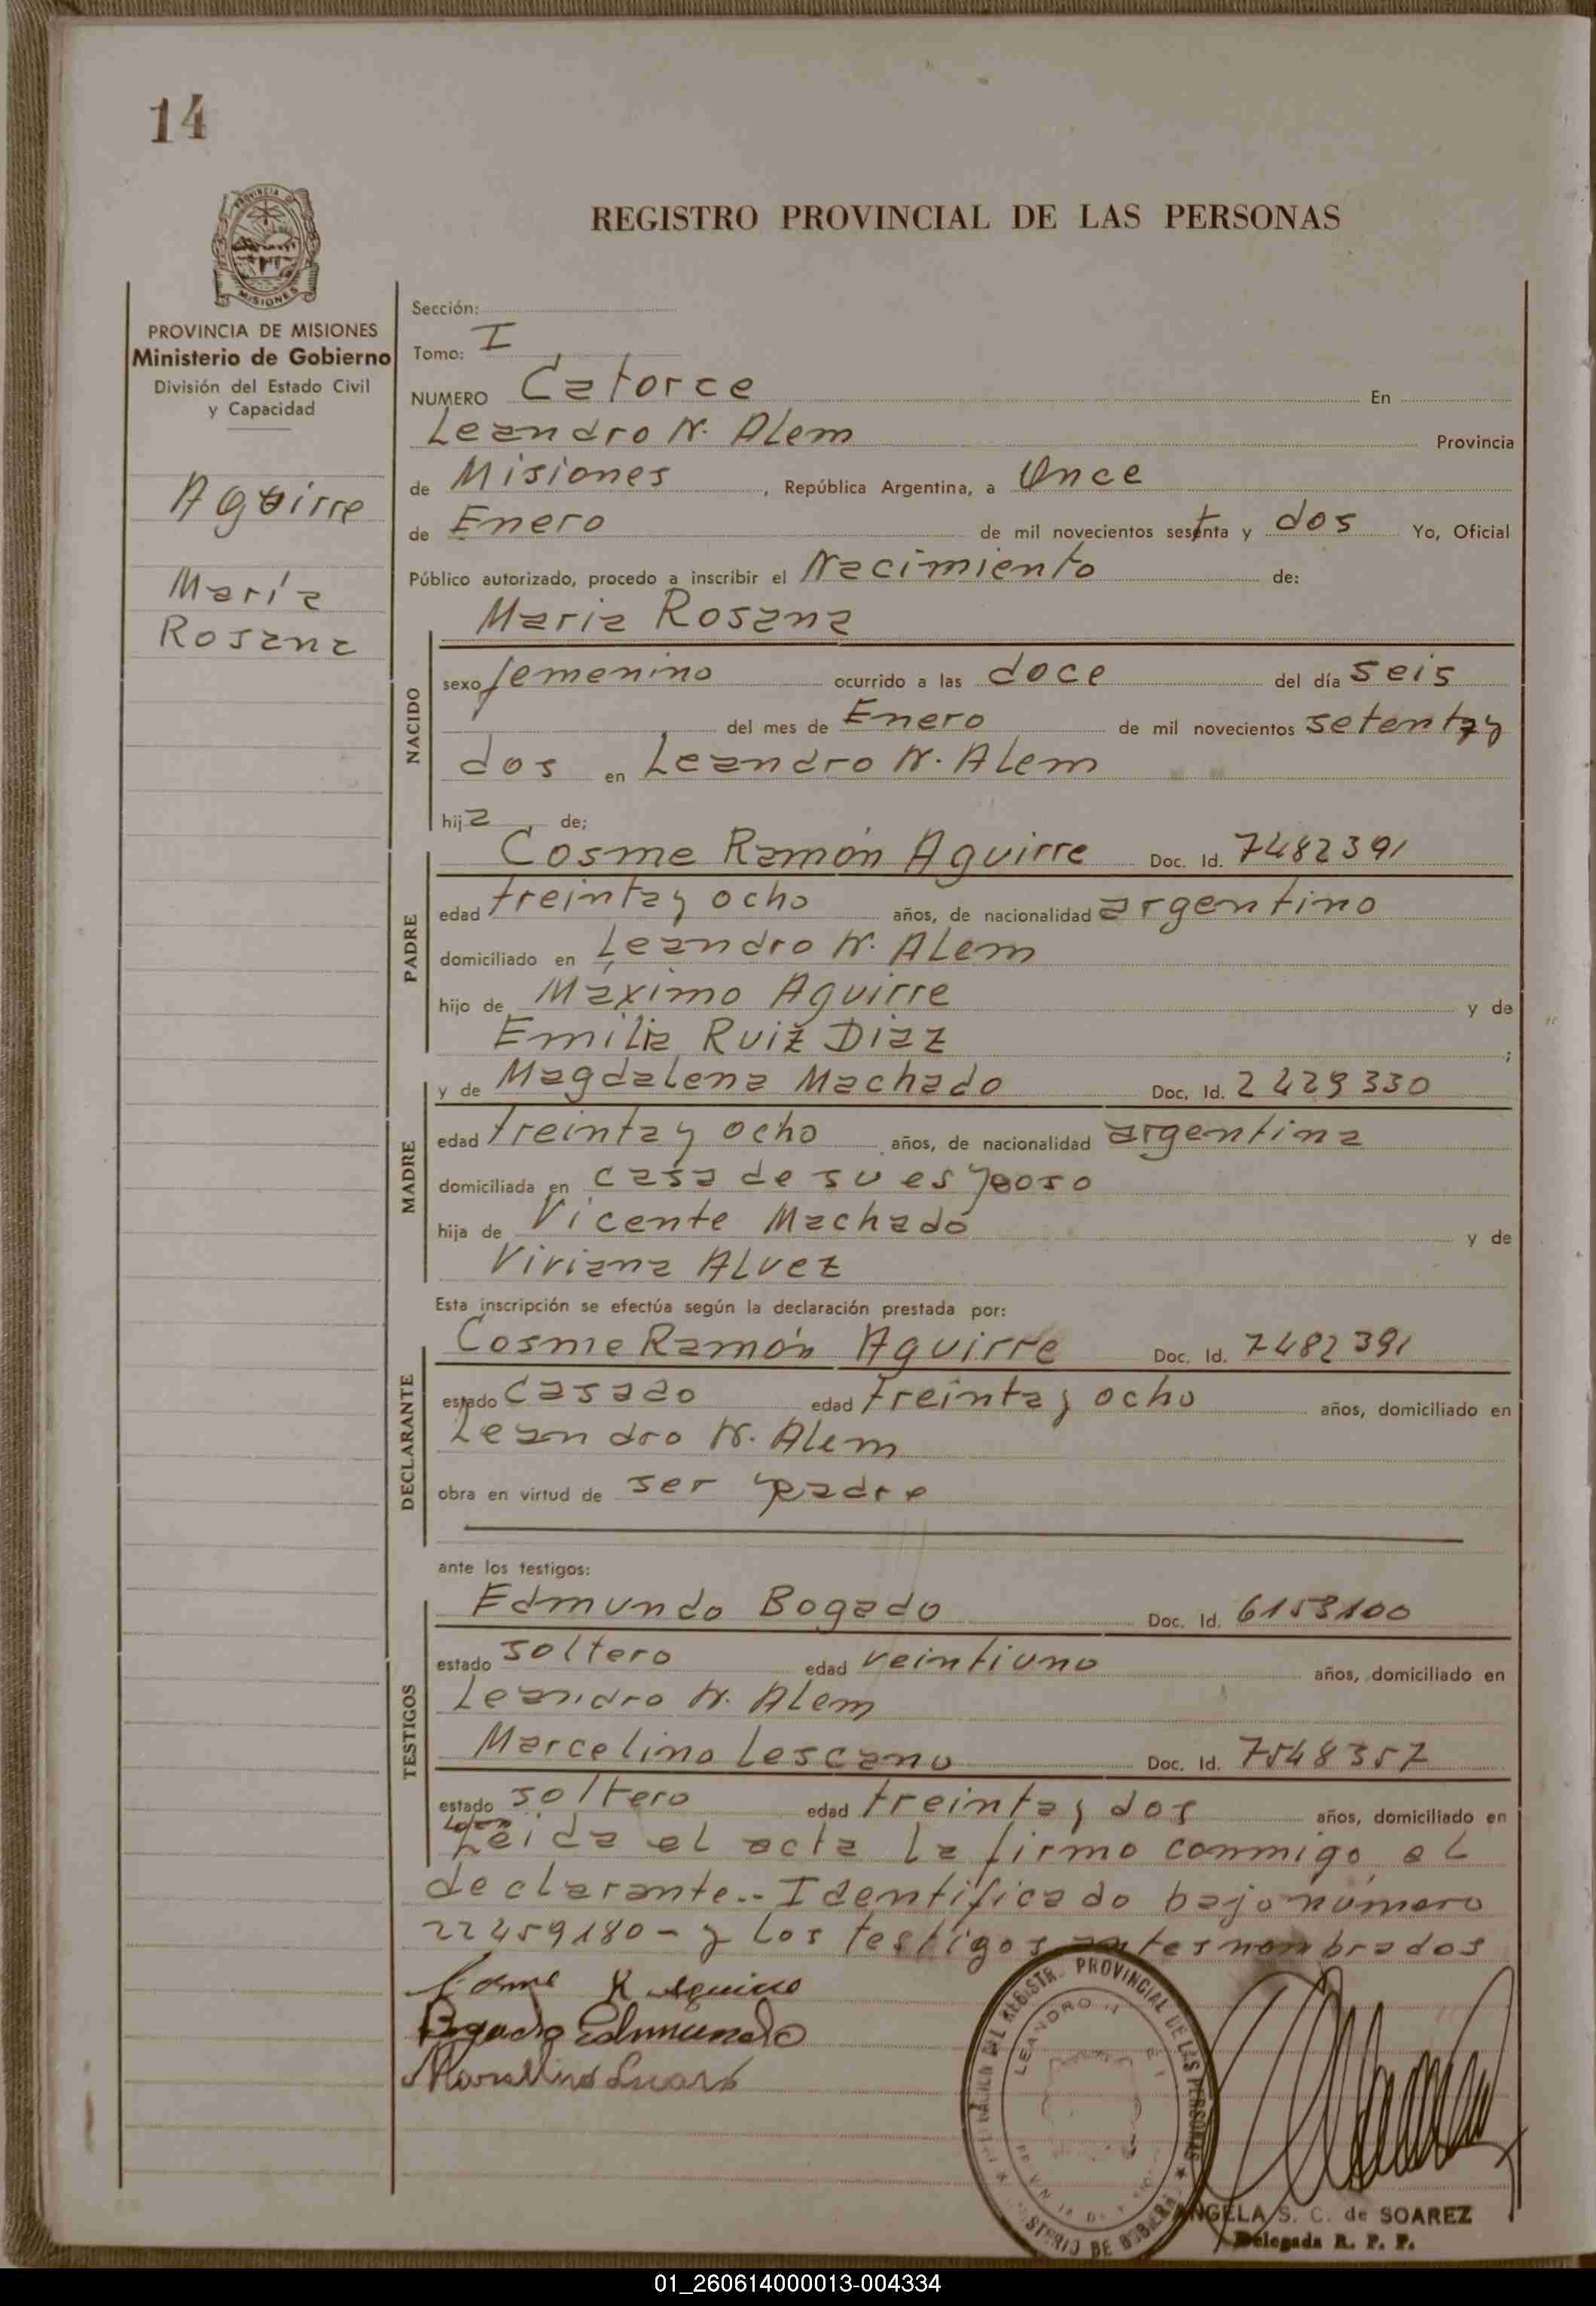 14
PROVINCIA
MISIONES
REGISTRO PROVINCIAL DE LAS PERSONAS
PROVINCIA DE MISIONES
Ministerio de Gobierno
División del Estado Civil
y Capacidad
Aguirre
María
Rosana
Sección:
Tomo: I
NUMERO Catorce En
Leandro N. Alem Provincia
de Misiones, República Argentina, a Once
de Enero de mil novecientos setenta y dos Yo, Oficial
Público autorizado, procedo a inscribir el Nacimiento de:
Maria Rosana
NACIDO
sexo femenino ocurrido a las doce del día seis
del mes de Enero de mil novecientos setenta y
dos en Leandro N. Alem
hija de;
PADRE
Cosme Ramón Aguirre Doc. Id. 7482391
edad treinta y ocho años, de nacionalidad argentino
domiciliado en Leandro N. Alem
hijo de Máximo Aguirre y de
Emilia Ruiz Diaz ;
MADRE
y de Magdalena Machado Doc. Id. 2429330
edad treinta y ocho años, de nacionalidad argentina
domiciliada en casa de su esposo
hija de Vicente Machado y de
Viviana Alvez
Esta inscripción se efectúa según la declaración prestada por:
DECLARANTE
Cosme Ramón Aguirre Doc. Id. 7482391
estado casado edad treinta y ocho años, domiciliado en
Leandro N. Alem
obra en virtud de ser padre
ante los testigos:
TESTIGOS
Edmundo Bogado Doc. Id. 6153100
estado soltero edad veintiuno años, domiciliado en
Leandro N. Alem
Marcelino Lescano Doc. Id. 7548357
estado soltero edad treinta y dos años, domiciliado en
Leida el acta la firmo conmigo el
declarante.. Identificado bajo número
22459180 - y los testigos antes nombrados
Cosme R Aguirre
Bogado Edmundo
REGISTR. PROVINCIAL DE LAS PERSONAS
LEANDRO
DE GOBIERN
ANGELA S. C. de SOAREZ
Delegada R. P. P.
01_260614000013-004334